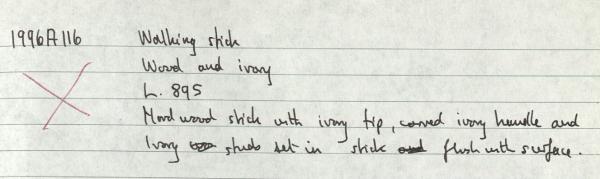 1996A116 Walking stick
Wood and ivory
L. 895
Hard wood stick with ivory tip, carved ivory handle and
Ivory studs set in stick flush with surface.